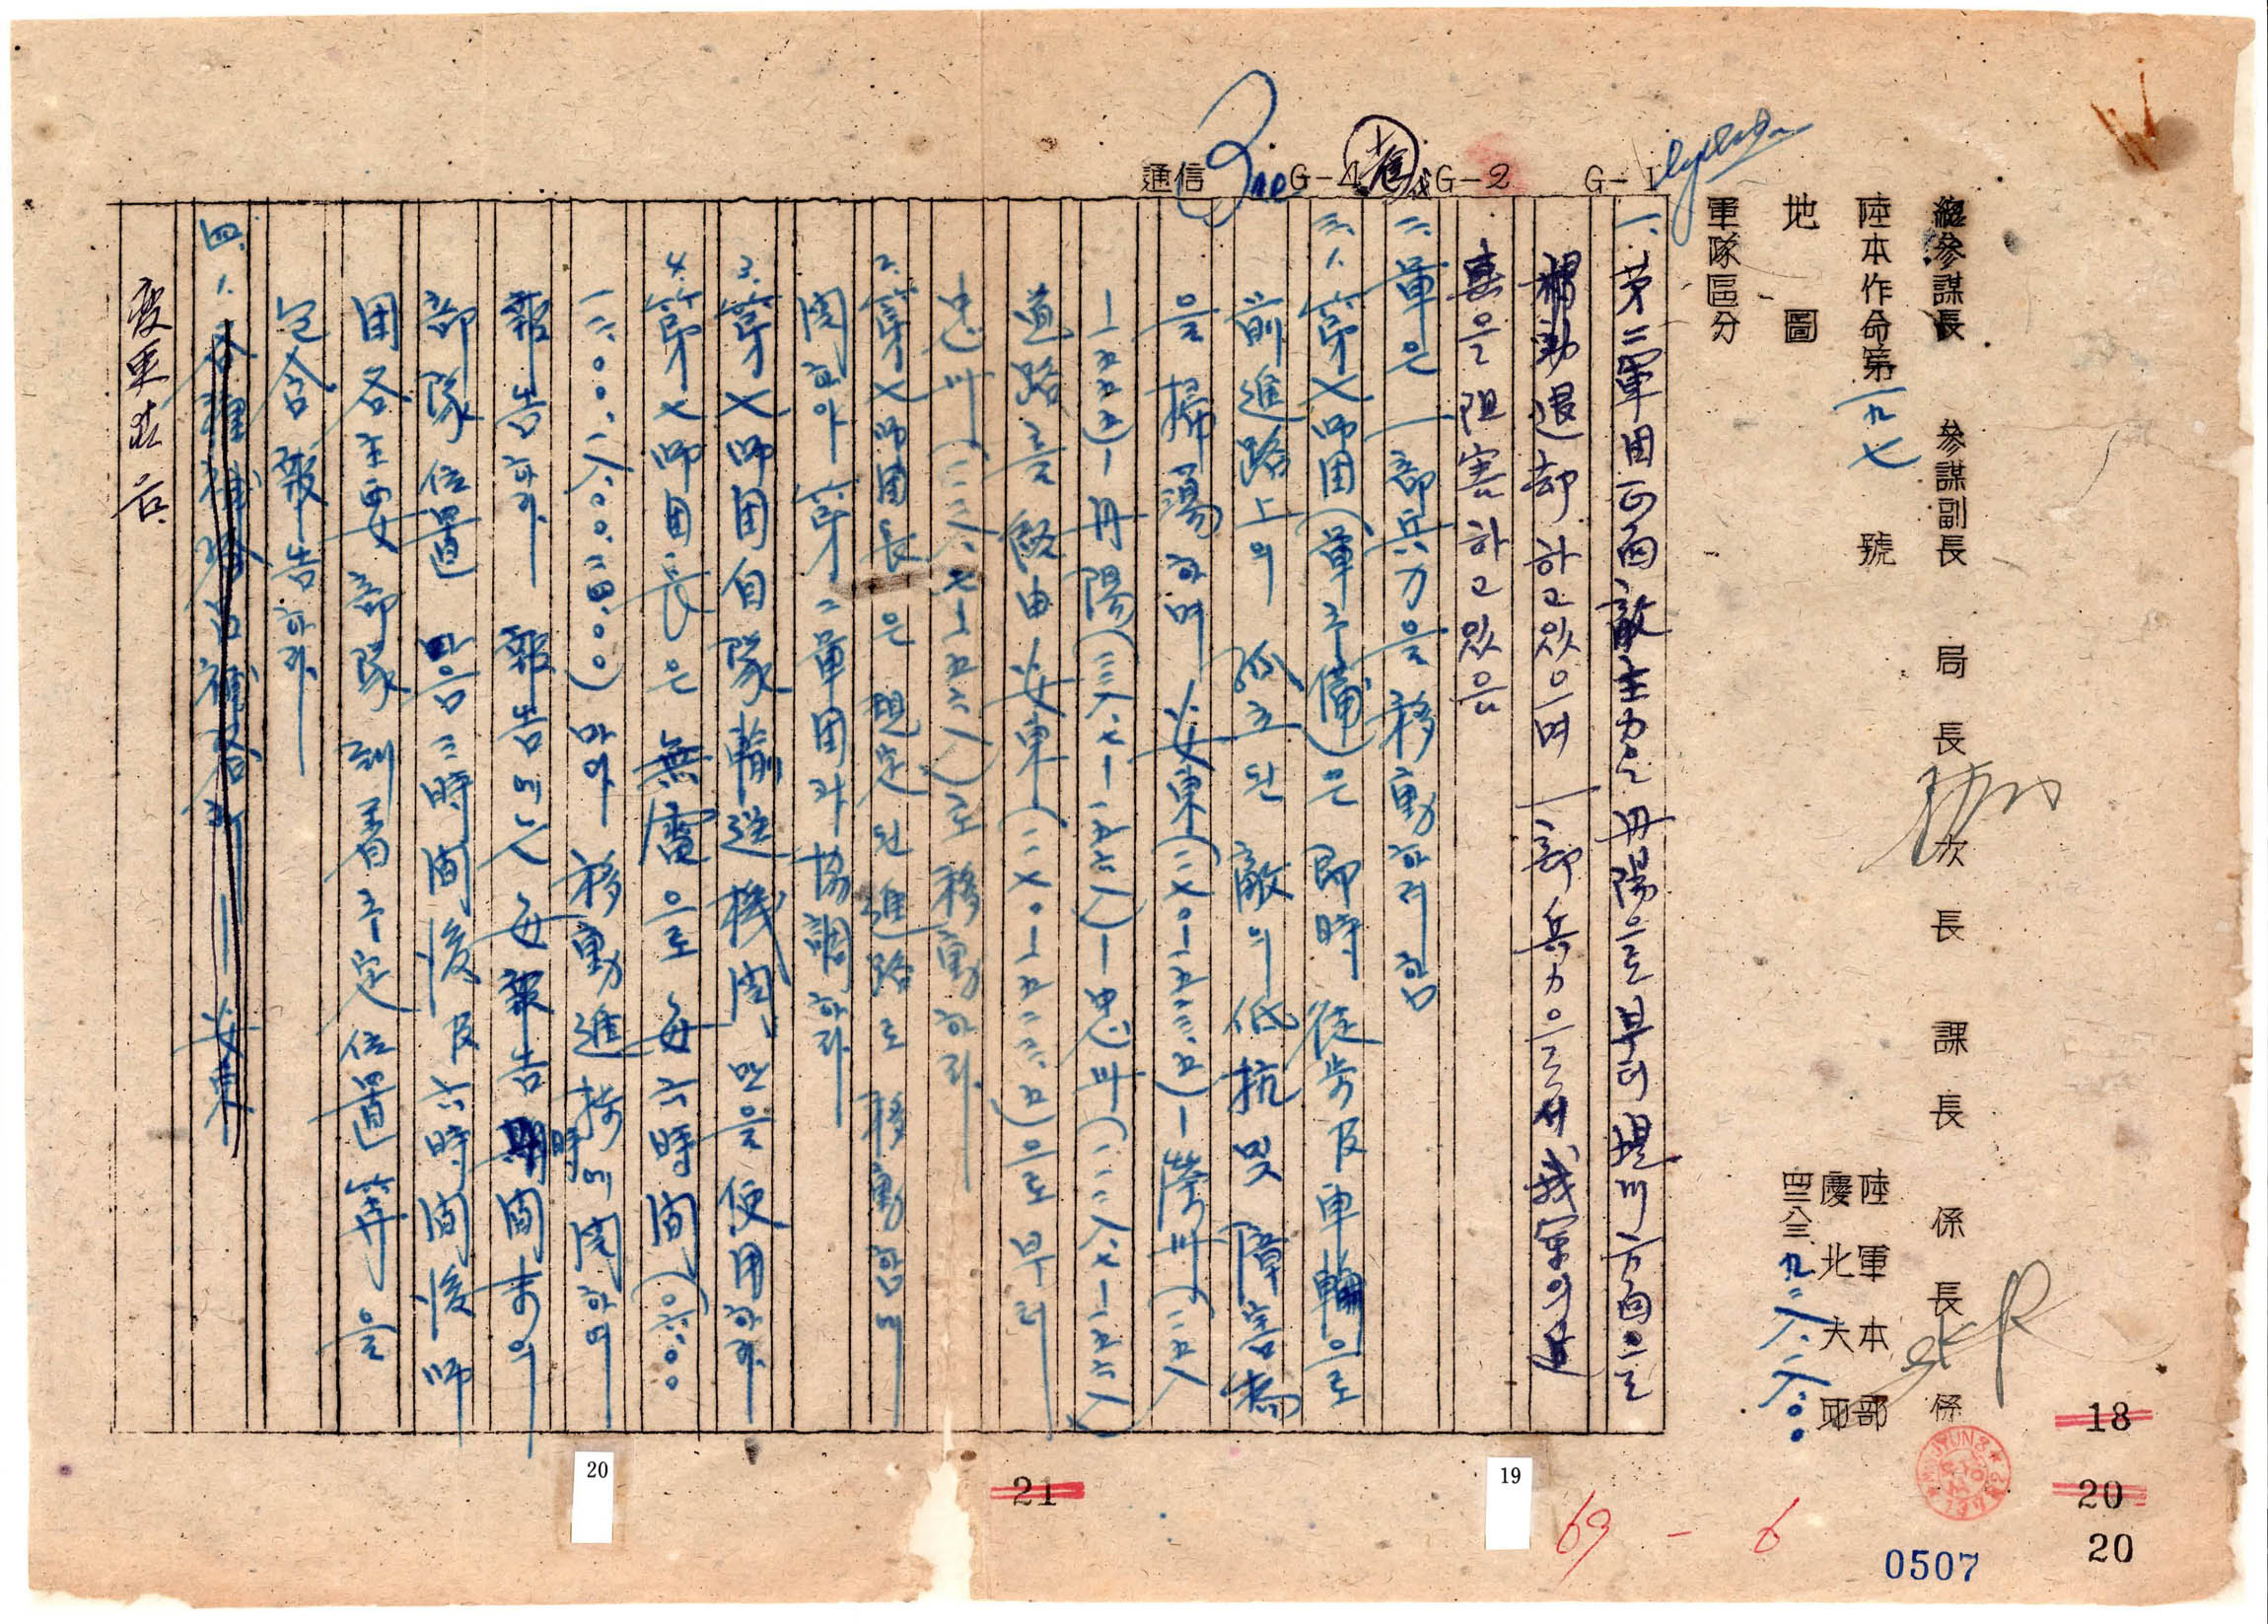 總參謀長 參謀副長 局長 次長 課長 係長 係
陸本作命第一九七號
陸軍本部
慶北大邱
四二八三.九.二八.一八:〇〇
地圖
軍隊區分
G-1
G-2
G-4
通信
一. 第二軍団正面敵主力은 丹陽으로부터 堤川方面으로
褶動退却하고있으며 一部兵力으로서 我軍의進
出을阻害하고있음
二. 軍은 一部兵力을移動하려함
三. 1. 第七師団(軍予備)은 即時徒歩及車輛으로
前進路上의 孤立된敵의低抗및障害物
을掃蕩하며 安東(一一七〇-一五二三.五)-榮州(一一五八
-一五五五)-丹陽(一一三八.七-一五六八)-忠州(一一二八.七-一五六八)
道路를經由 安東(一一七〇-一五二三.五)으로부터
忠州(一一二八.七-一五六八)로移動하라.
2. 第七師団長은 規定된進路로移動함에
関하야 第二軍団과協調하라.
3. 第七師団自隊輸送機関만을使用하라.
4. 第七師団長은無電으로每六時間(〇六:〇〇
一二:〇〇.一八:〇〇.二四:〇〇)마다 移動進捗에関하여
報告하라. 報告에는每報告時間末의
部隊位置 다음三時間後及六時間後師
団各主要部隊到着予定位置等을
包含報告하라.
四. 1. 各種補給品補給所 - 安東
變更없음
18
20
20
21
19
20
69 - 6
0507